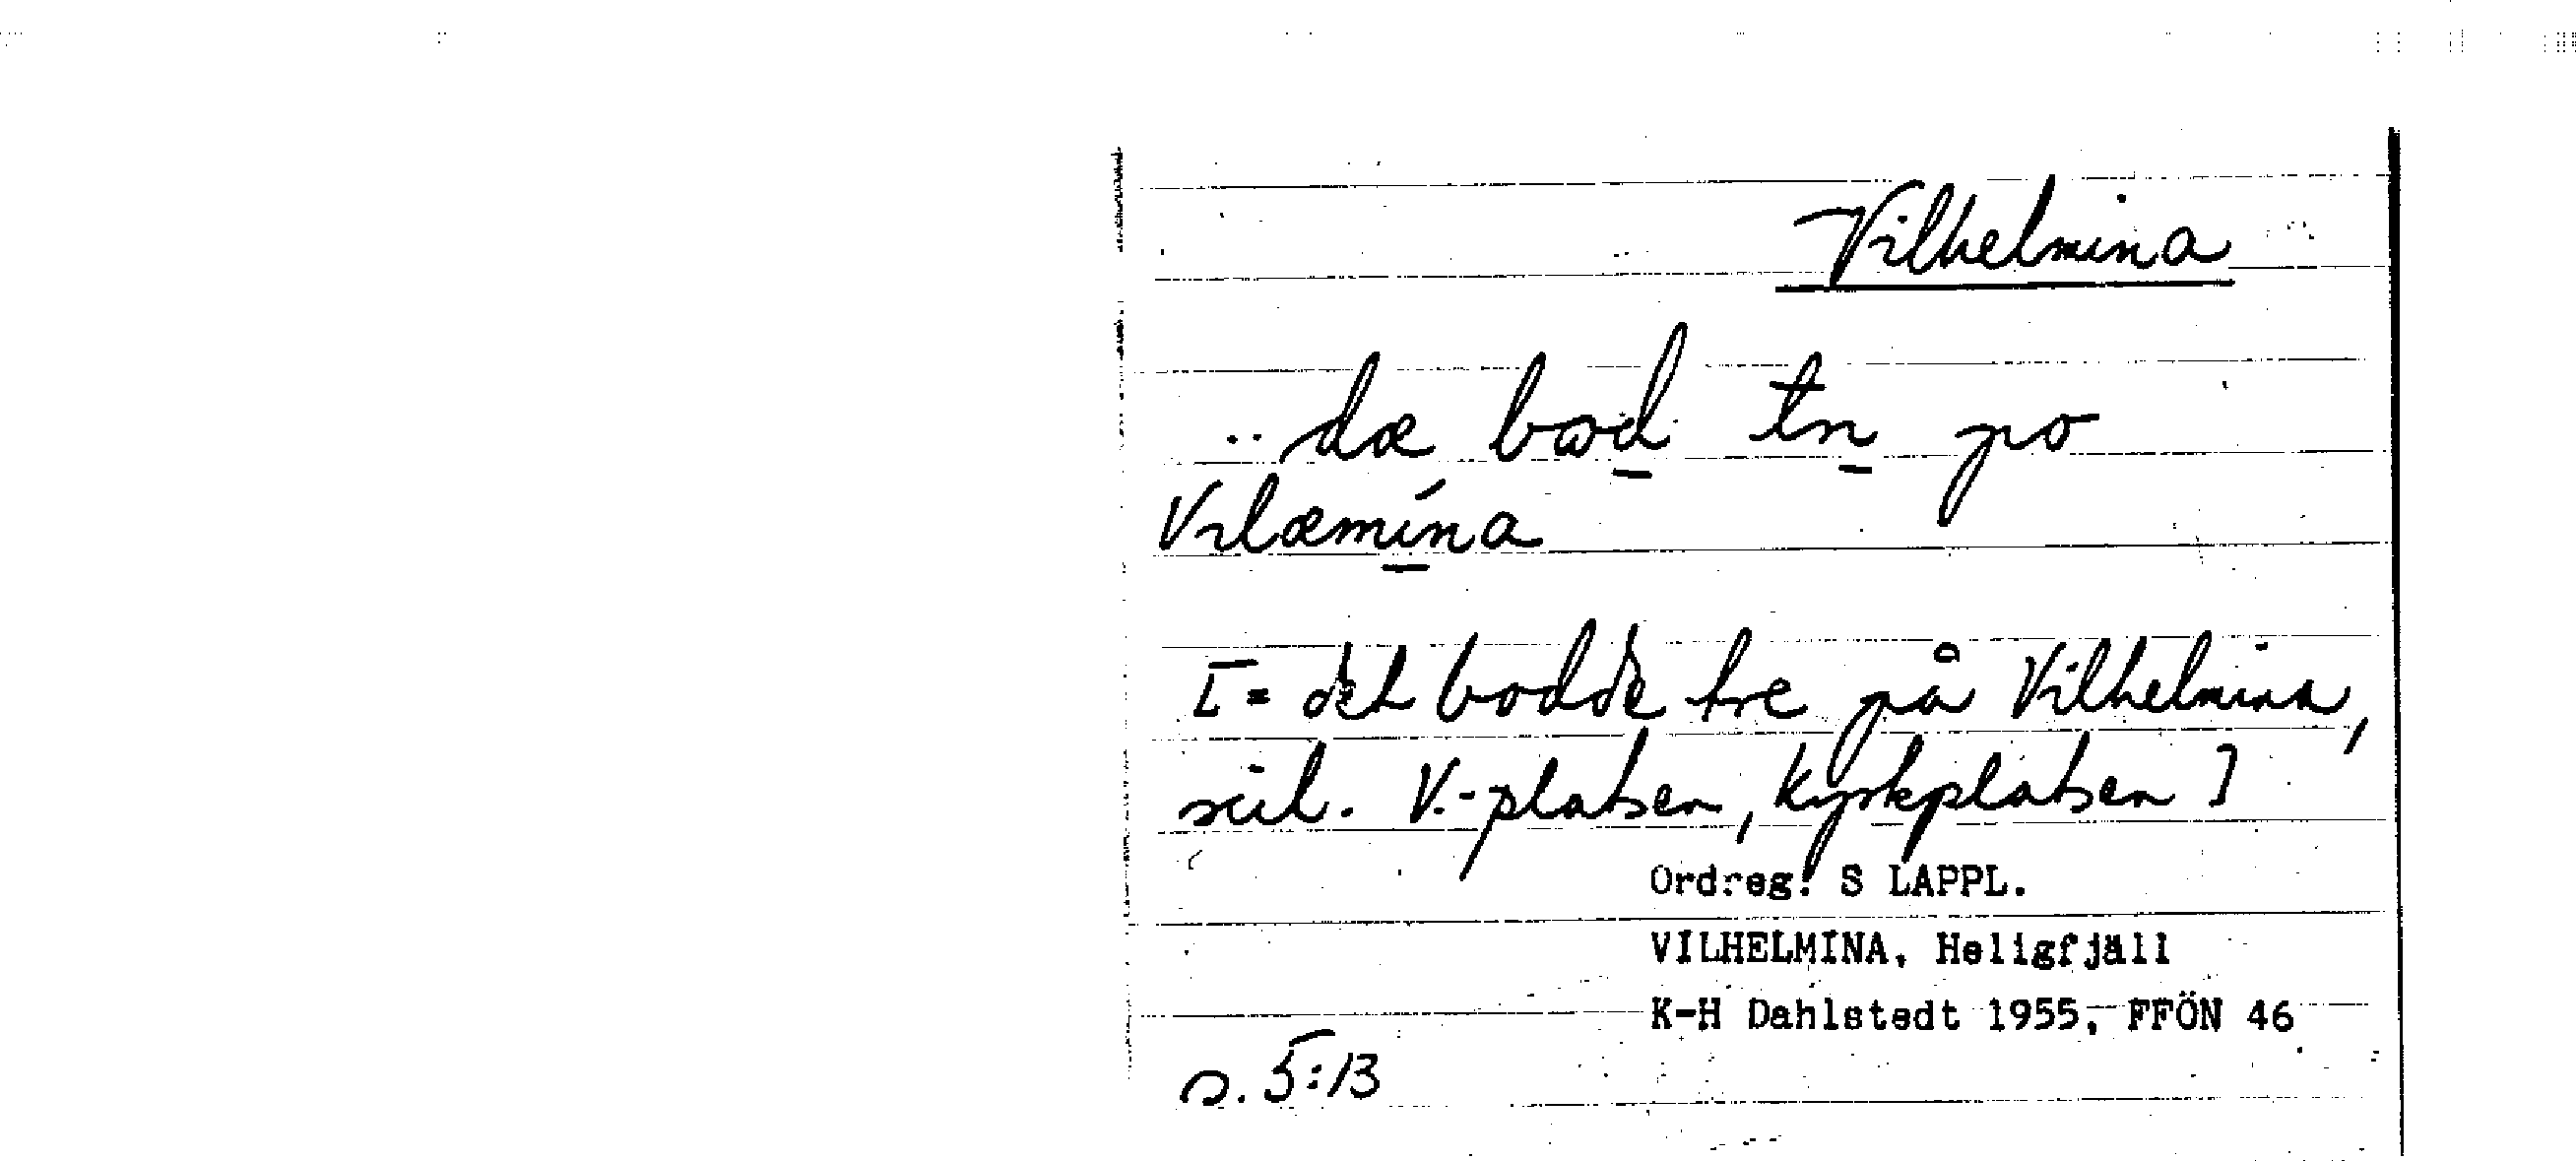 Vilhelmina
.. dæ bod tn po
Vilæmina
[= det bodde tre på Vilhelmina,
scil. V.-platsen, Kyrkplatsen]
Ordreg: S LAPPL.
VILHELMINA, Heligfjäll
K-H Dahlstedt 1955, FFÖN 46
s. 5:13